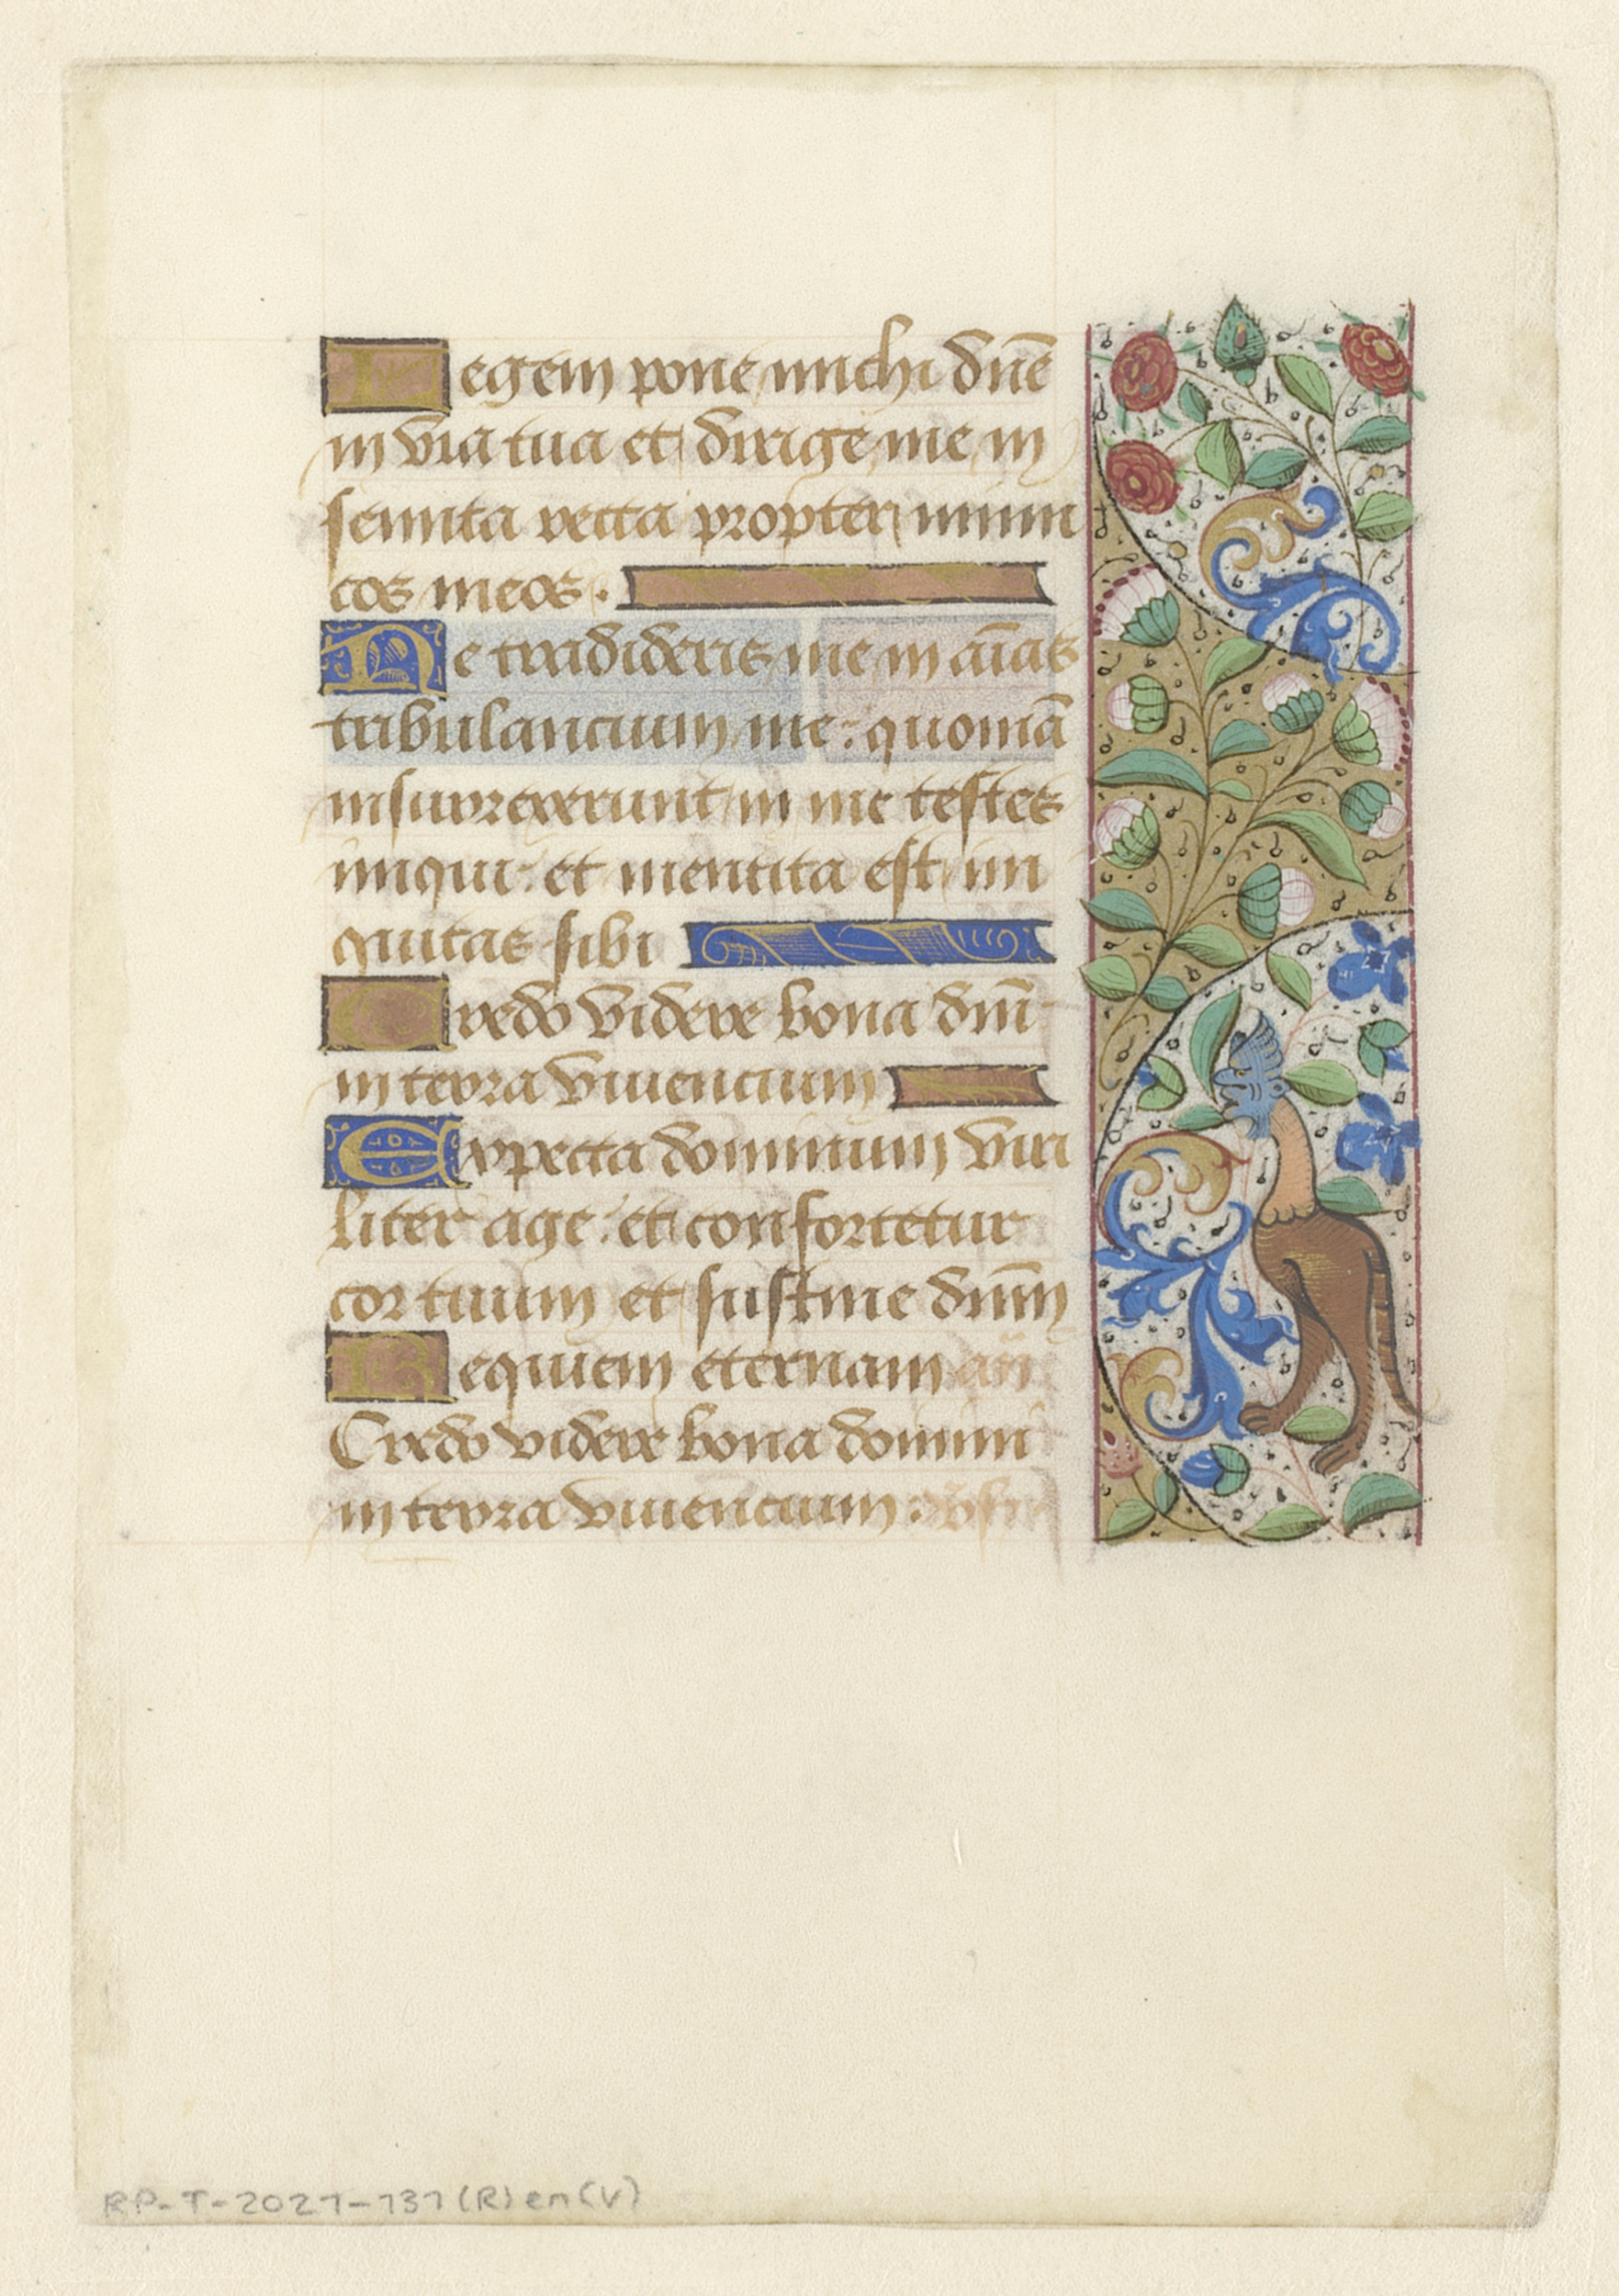 Legem pone michi dn̄e
in via tua et dirige me in
semita recta propter inimi
cos meos .
Ne tradideris me in aı̄as
tribulancium me : quoniā
insurrexerunt in me testes
iniqui : et mentita est ini
quitas sibi
Credo videre bona dnı̄
in terra viuencium
Expecta dominum viri
liter age : et confortetur
cor tuum et sustine dnı̄m
Requiem eternam an̄
Credo videre bona domini
in terra viuencium :
RP-T-2021-131 (R) en (V)